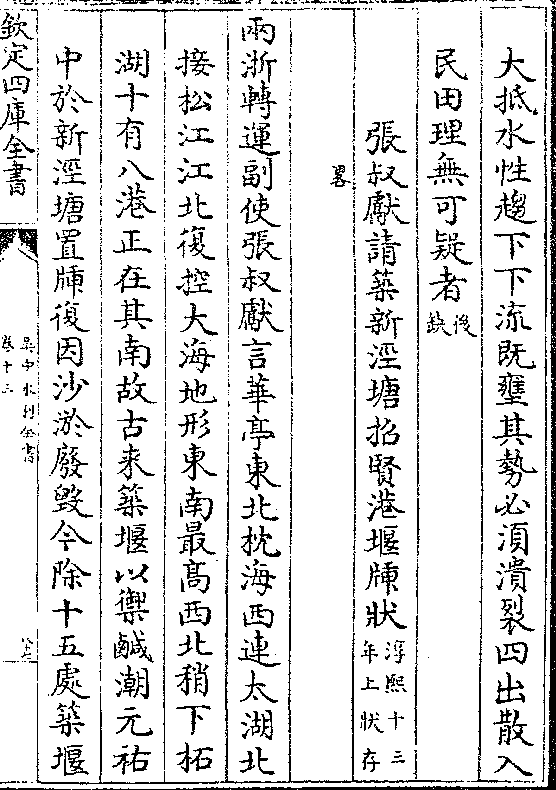 大抵水性趨下下流既壅其勢必須潰裂四出散入
民田理無可疑者後缺
張叔獻請築新涇塘招賢港堰牐狀淳熙十三年上狀存
畧
兩浙轉運副使張叔獻言華亭東北枕海西連太湖北
接松江江北復控大海地形東南最高西北稍下柘
湖十有八港正在其南故古來築堰以禦鹹潮元祐
中於新涇塘置牐復因沙淤廢毀今除十五處築堰
欽定四庫全書
吳中水利全書
卷十三